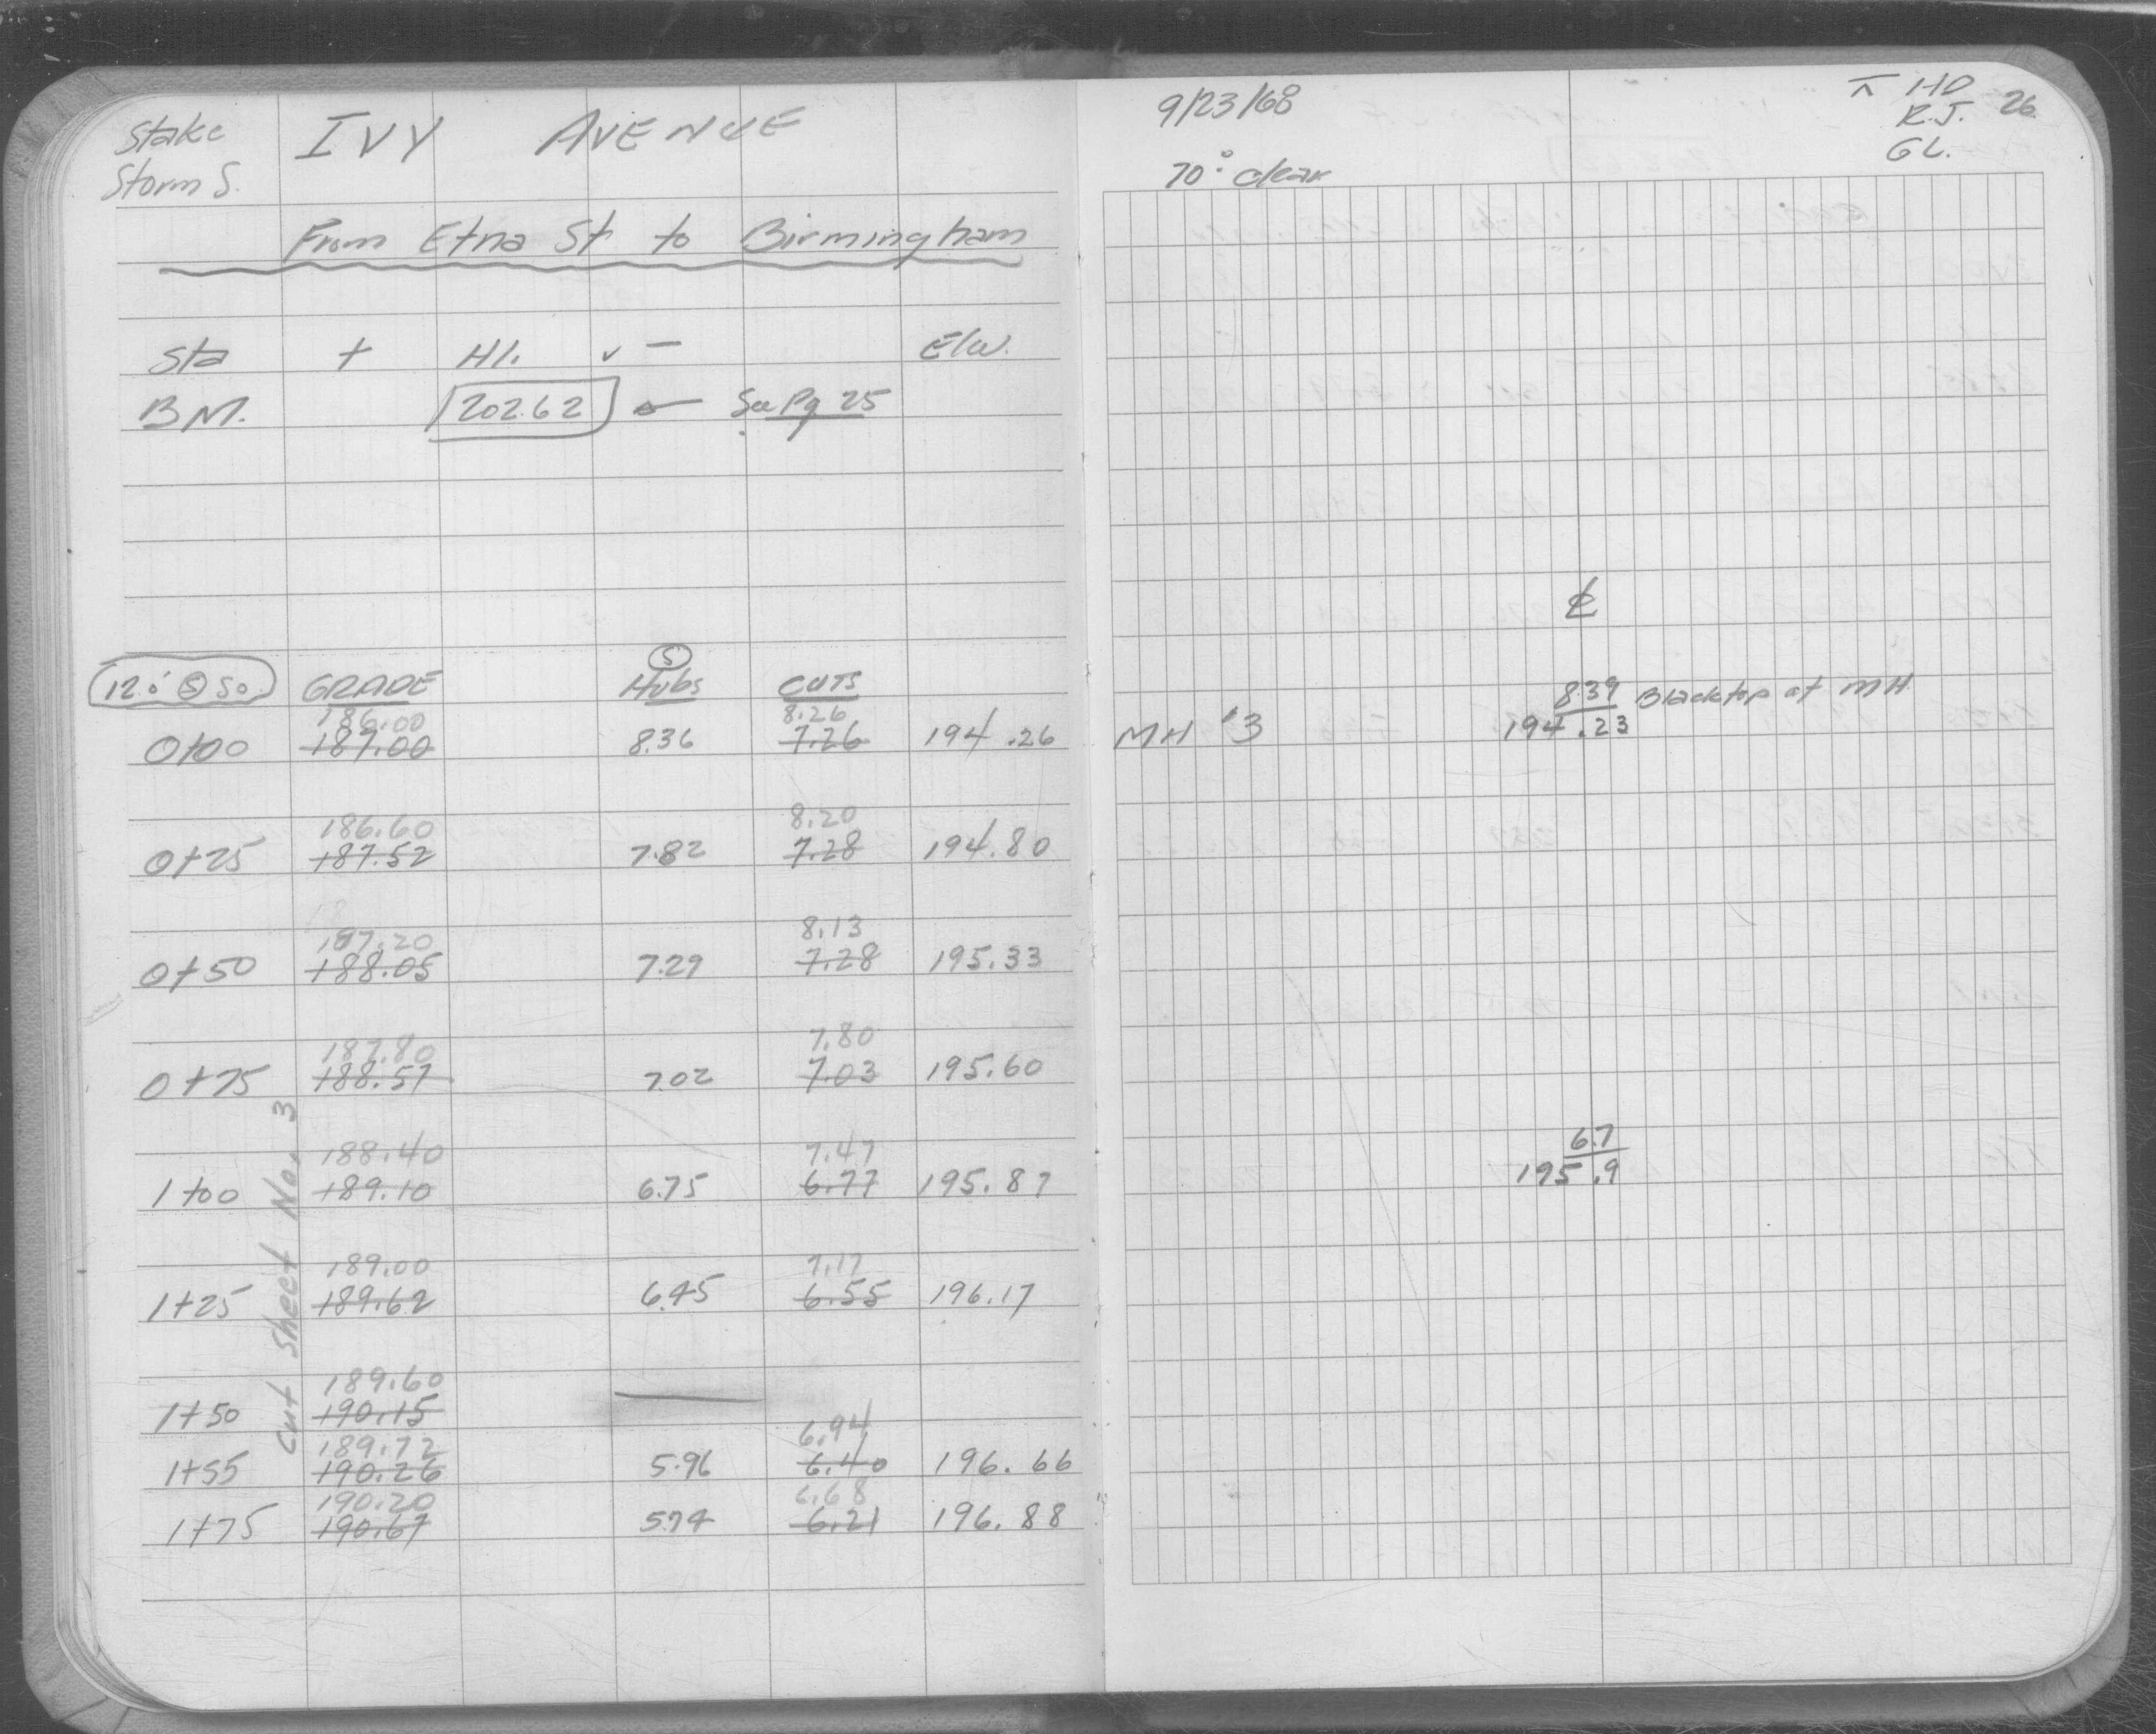 Stake IVY AVENUE
Storm S.
From Etna St to Birmingham
Sta + HI. - Elev.
B.M. 202.62 See Pg 25
12.0' Ⓢ So GRADE Ⓢ Hubs CUTS
186.00 8.26
0+00 187.00 8.36 7.26 194.26
186.60 8.20
0+25 187.52 7.82 7.28 194.80
187.20 8.13
0+50 188.05 7.29 7.28 195.33
187.80 7.80
0+75 188.57 7.02 7.03 195.60
188.40 7.47
1+00 189.10 6.75 6.77 195.87
189.00 7.17
1+25 189.62 6.45 6.55 196.17
189.60
1+50 190.15
189.72 6.94
1+55 190.26 5.96 6.40 196.66
190.20 6.68
1+75 190.67 5.74 6.21 196.88
Cut Sheet No. 3
9/23/68
70° clear
⊼ HD
R.J. 26
GL.
℄
8.39 Blacktop at MH
MH #3 194.23
6.7
195.9